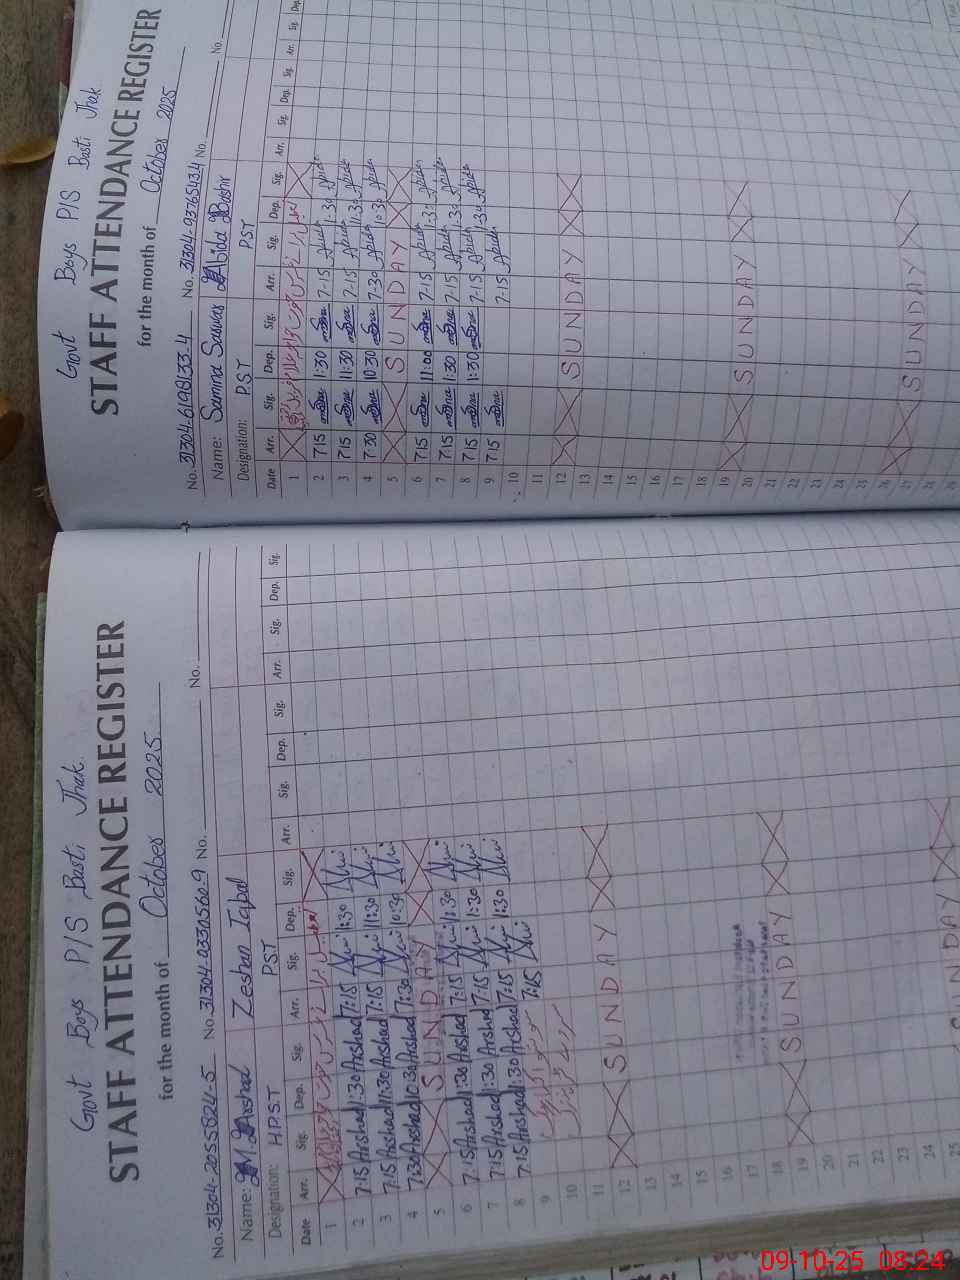 Govt Boys P/S Basti Jhak.
STAFF ATTENDANCE REGISTER
for the month of October 2025
No. 31304-2055824-5 No. 31304-0330560-9 No. No.
Name: M. Arshad Zeshan Iqbal
Designation: H.P.S.T P.S.T
Date Arr. Sig. Dep. Sig. Arr. Sig. Dep. Sig. Arr. Sig. Dep. Sig. Arr. Sig. Dep. Sig.
1
2 7:15 Arshad 1:30 Arshad 7:15 1:30
3 7:15 Arshad 11:30 Arshad 7:15 11:30
4 7:30 Arshad 10:30 Arshad 7:30 10:30
5 SUNDAY
6 7:15 Arshad 1:30 Arshad 7:15
7 7:15 Arshad 1:30 Arshad 7:15 1:30
8 7:15 Arshad 1:30 Arshad 7:15 1:30
9 7:15
10
11
12 SUNDAY
13
14
15
16
17
18
19 SUNDAY
20
21
22
23
24
25
SUNDAY
Govt Boys P/S Basti Jhak
STAFF ATTENDANCE REGISTER
for the month of October 2025
No. 31304-6198133-4 No. 31304-9376543-4 No. No.
Name: Samina Sarwar Abida Bashir
Designation: P.S.T PST
Date Arr. Sig. Dep. Sig. Arr. Sig. Dep. Sig. Arr. Sig. Dep. Sig. Arr. Sig. Dep.
1
2 7:15 1:30 7-15 Abida 1:30 Abida
3 7:15 11:30 7-15 Abida 11:30 Abida
4 7:30 10:30 7-30 Abida 10:30 Abida
5 SUNDAY
6 7:15 11:00 7-15 Abida Abida
7 7:15 1:30 7-15 Abida 1:30 Abida
8 7:15 1:30 7-15 Abida 1:30 Abida
9 7:15 7-15 Abida
10
11
12 SUNDAY
13
14
15
16
17
18
19 SUNDAY
20
21
22
23
24
25
26 SUNDAY
27
28
29
09-10-25 08:24